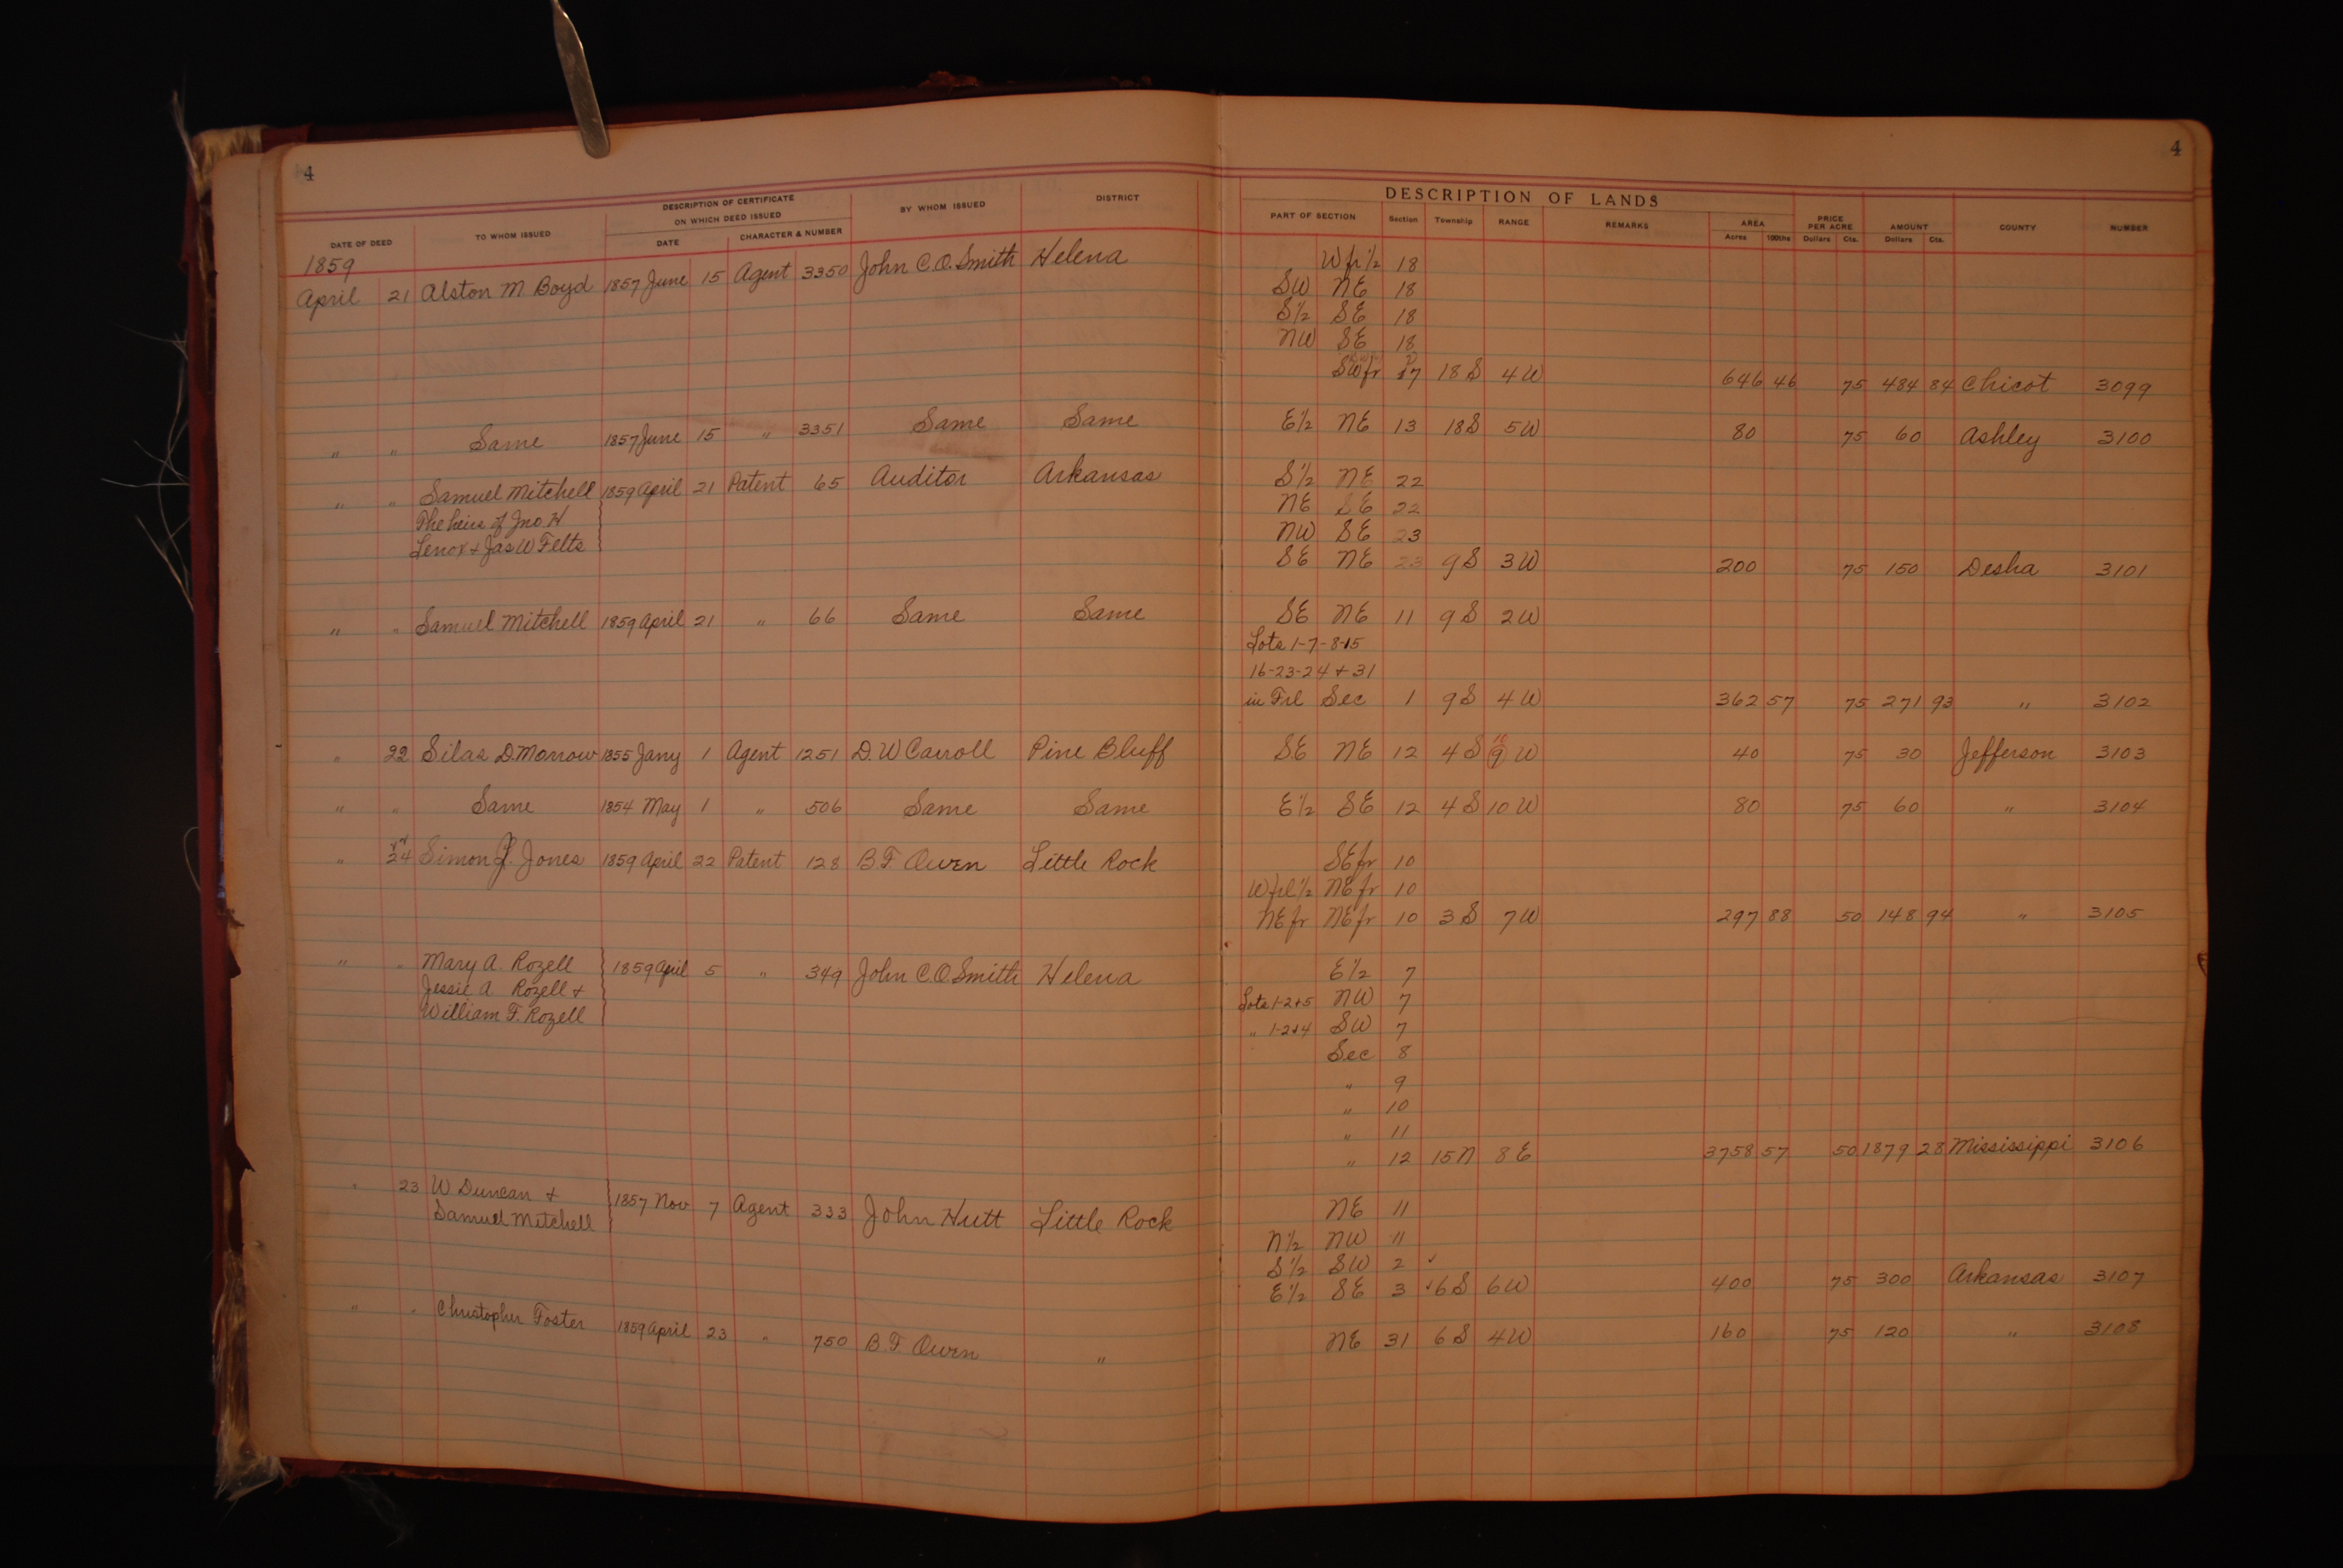 4 4
DESCRIPTION OF LANDS
DATE OF DEED TO WHOM ISSUED DESCRIPTION OF CERTIFICATE ON WHICH DEED ISSUED BY WHOM ISSUED DISTRICT PART OF SECTION Section Township RANGE REMARKS AREA PRICE PER ACRE AMOUNT COUNTY NUMBER
DATE CHARACTER & NUMBER Acres 100ths Dollars Cts. Dollars Cts.
1859
April 21 Alston M Boyd 1857 June 15 Agent 3350 John C.O. Smith Helena W fr ½ 18
SW NE 18
S½ SE 18
NW SE 18
SW fr 17 18 S 4 W 646 46 75 484 84 Chicot 3099
" " Same 1857 June 15 " 3351 Same Same E½ NE 13 18 S 5 W 80 75 60 Ashley 3100
" " Samuel Mitchell 1859 April 21 Patent 65 Auditor Arkansas S½ NE 22
The heirs of Jno. H NE SE 22
Lenox & Jas W Felts NW SE 23
SE NE 23 9 S 3 W 200 75 150 Desha 3101
" " Samuel Mitchell 1859 April 21 " 66 Same Same SE NE 11 9 S 2 W
Lots 1-7-8-15
16-23-24 & 31
in Frl Sec 1 9 S 4 W 362 57 75 271 93 " 3102
" 22 Silas D. Morrow 1855 Jany 1 Agent 1251 D. W Carroll Pine Bluff SE NE 12 4 S 9 W 40 75 30 Jefferson 3103
" " Same 1854 May 1 " 506 Same Same E½ SE 12 4 S 10 W 80 75 60 " 3104
" 24 Simon J. Jones 1859 April 22 Patent 128 B F Owen Little Rock SE fr 10
W frl ½ NE fr 10
NE fr NE fr 10 3 S 7 W 297 88 50 148 94 " 3105
" " Mary A. Rozell 1859 April 5 " 349 John C.O. Smith Helena E½ 7
Jessie A Rozell & Lots 1-2&5 NW 7
William F. Rozell " 1-2&4 SW 7
Sec 8
" 9
" 10
" 11
" 12 15 N 8 E 3758 57 50 1879 28 Mississippi 3106
" 23 W Duncan & 1857 Nov 7 Agent 333 John Hutt Little Rock NE 11
Samuel Mitchell N½ NW 11
S½ SW 2
E½ SE 3 6 S 6 W 400 75 300 Arkansas 3107
" " Christopher Foster 1859 April 23 " 750 B F Owen " NE 31 6 S 4 W 160 75 120 " 3108